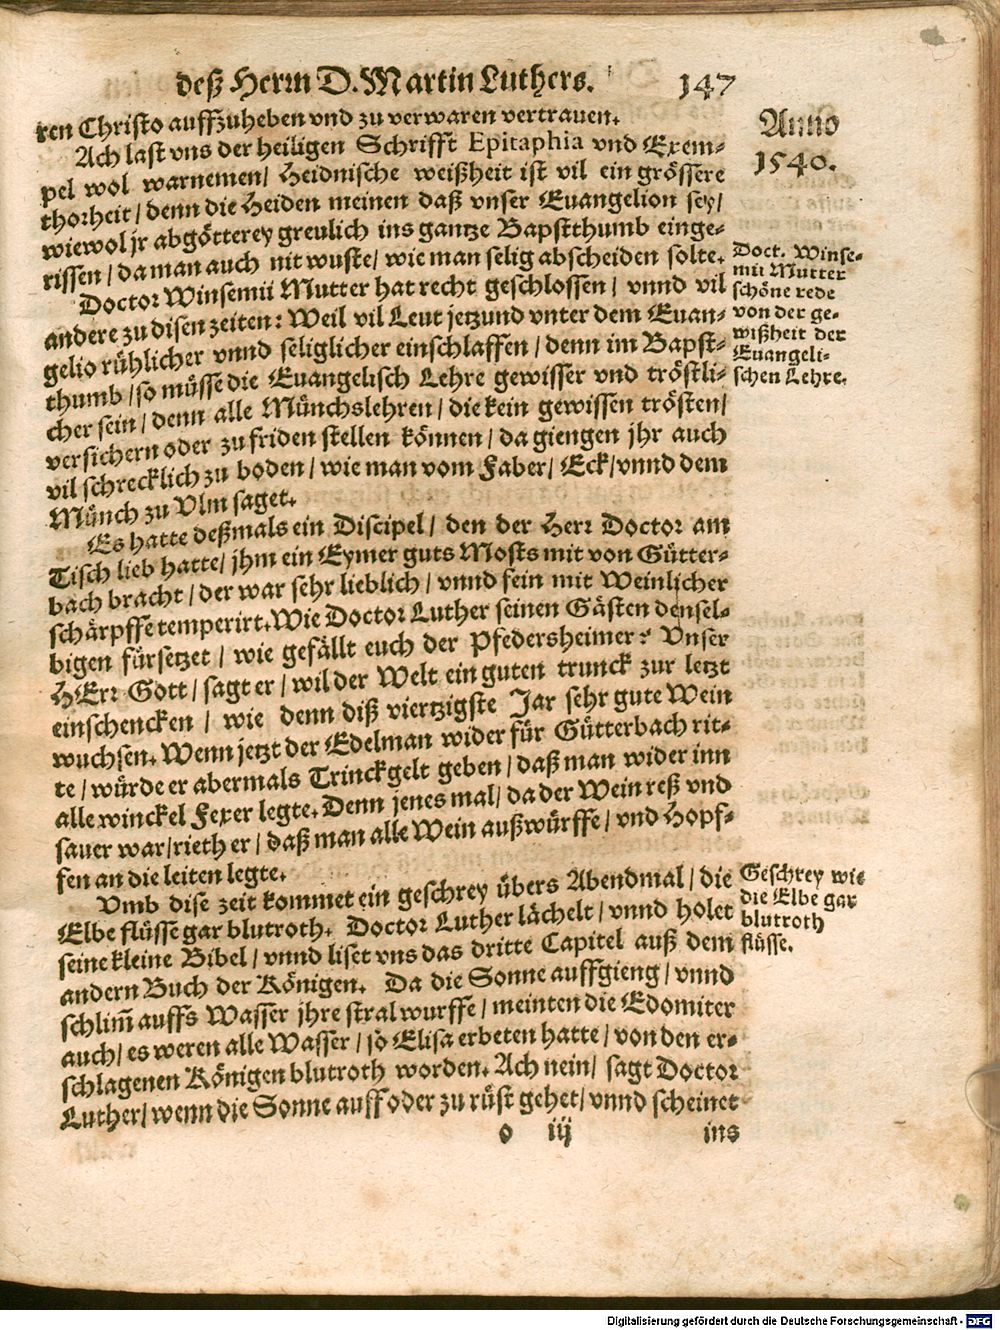 deß Herrn D. Martin Luthers. 147
ren Christo auffzuheben vnd zu verwaren vertrauen.
Ach last vns der heiligen Schrifft Epitaphia vnd Exem-
pel wol warnemen/ Heidnische weißheit ist vil ein grössere
thorheit/ denn die Heiden meinen daß vnser Euangelion sey/
wiewol jr abgötterey greulich ins gantze Bapstthumb einge-
rissen/ da man auch nit wuste/ wie man selig abscheiden solte.
Doctor Winsemii Mutter hat recht geschlossen/ vnnd vil
andere zu disen zeiten: Weil vil Leut jetzund vnter dem Euan-
gelio rühlicher vnnd seliglicher einschlaffen/ denn im Bapst-
thumb/ so müsse die Euangelisch Lehre gewisser vnd tröstli-
cher sein/ denn alle Münchslehren/ die kein gewissen trösten/
versichern oder zu friden stellen können/ da giengen jhr auch
vil schrecklich zu boden/ wie man vom Faber/ Eck/ vnnd dem
Münch zu Vlm saget.
Es hatte deßmals ein Discipel/ den der Herr Doctor am
Tisch lieb hatte/ jhm ein Eymer guts Mosts mit von Gütter-
bach bracht/ der war sehr lieblich/ vnnd fein mit Weinlicher
schärpffe temperirt. Wie Doctor Luther seinen Gästen densel-
bigen fürsetzet/ wie gefällt euch der Pfedersheimer? Vnser
HErr Gott/ sagt er/ wil der Welt ein guten trunck zur letzt
einschencken/ wie denn diß viertzigste Jar sehr gute Wein
wuchsen. Wenn jetzt der Edelman wider für Gütterbach rit-
te/ würde er abermals Trinckgelt geben/ daß man wider inn
alle winckel Fexer legte. Denn jenes mal/ da der Wein reß vnd
sauer war/ rieth er/ daß man alle Wein außwürffe/ vnd Hopf-
fen an die leiten legte.
Vmb dise zeit kommet ein geschrey übers Abendmal/ die
Elbe flüsse gar blutroth. Doctor Luther lächelt/ vnnd holet
seine kleine Bibel/ vnnd liset vns das dritte Capitel auß dem
andern Buch der Königen. Da die Sonne auffgieng/ vnnd
schlim̃ auffs Wasser jhre stral wurffe/ meinten die Edomiter
auch/ es weren alle Wasser/ so Elisa erbeten hatte/ von den er-
schlagenen Königen blutroth worden. Ach nein/ sagt Doctor
Luther/ wenn die Sonne auff oder zu rüst gehet/ vnnd scheinet
o iij ins
Anno
1540.
Doct. Winse-
mii Mutter
schöne rede
von der ge-
wißheit der
Euangeli-
schen Lehre.
Geschrey wie
die Elbe gar
blutroth
flüsse.
Digitalisierung gefördert durch die Deutsche Forschungsgemeinschaft - DFG